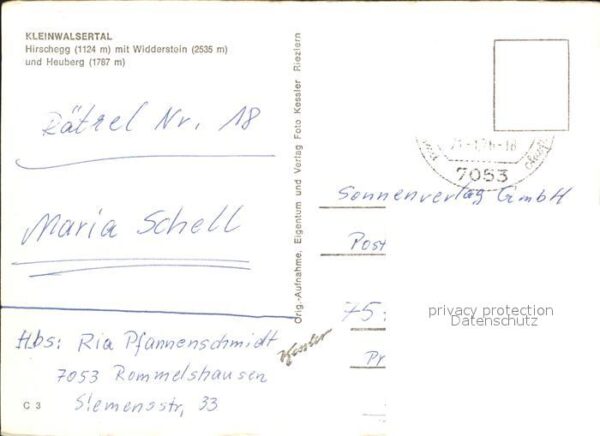 KLEINWALSERTAL
Hirschegg (1124 m) mit Widderstein (2535 m)
und Heuberg (1787 m)
Rätsel Nr. 18
Maria Schell
Hbs: Ria Pfannenschmidt
7053 Rommelshausen
Siemensstr, 33
C 3
Orig.-Aufnahme, Eigentum und Verlag Foto Kessler Riezlern
Kessler
7053
Sonnenverlag GmbH
Post
75
privacy protection
Datenschutz